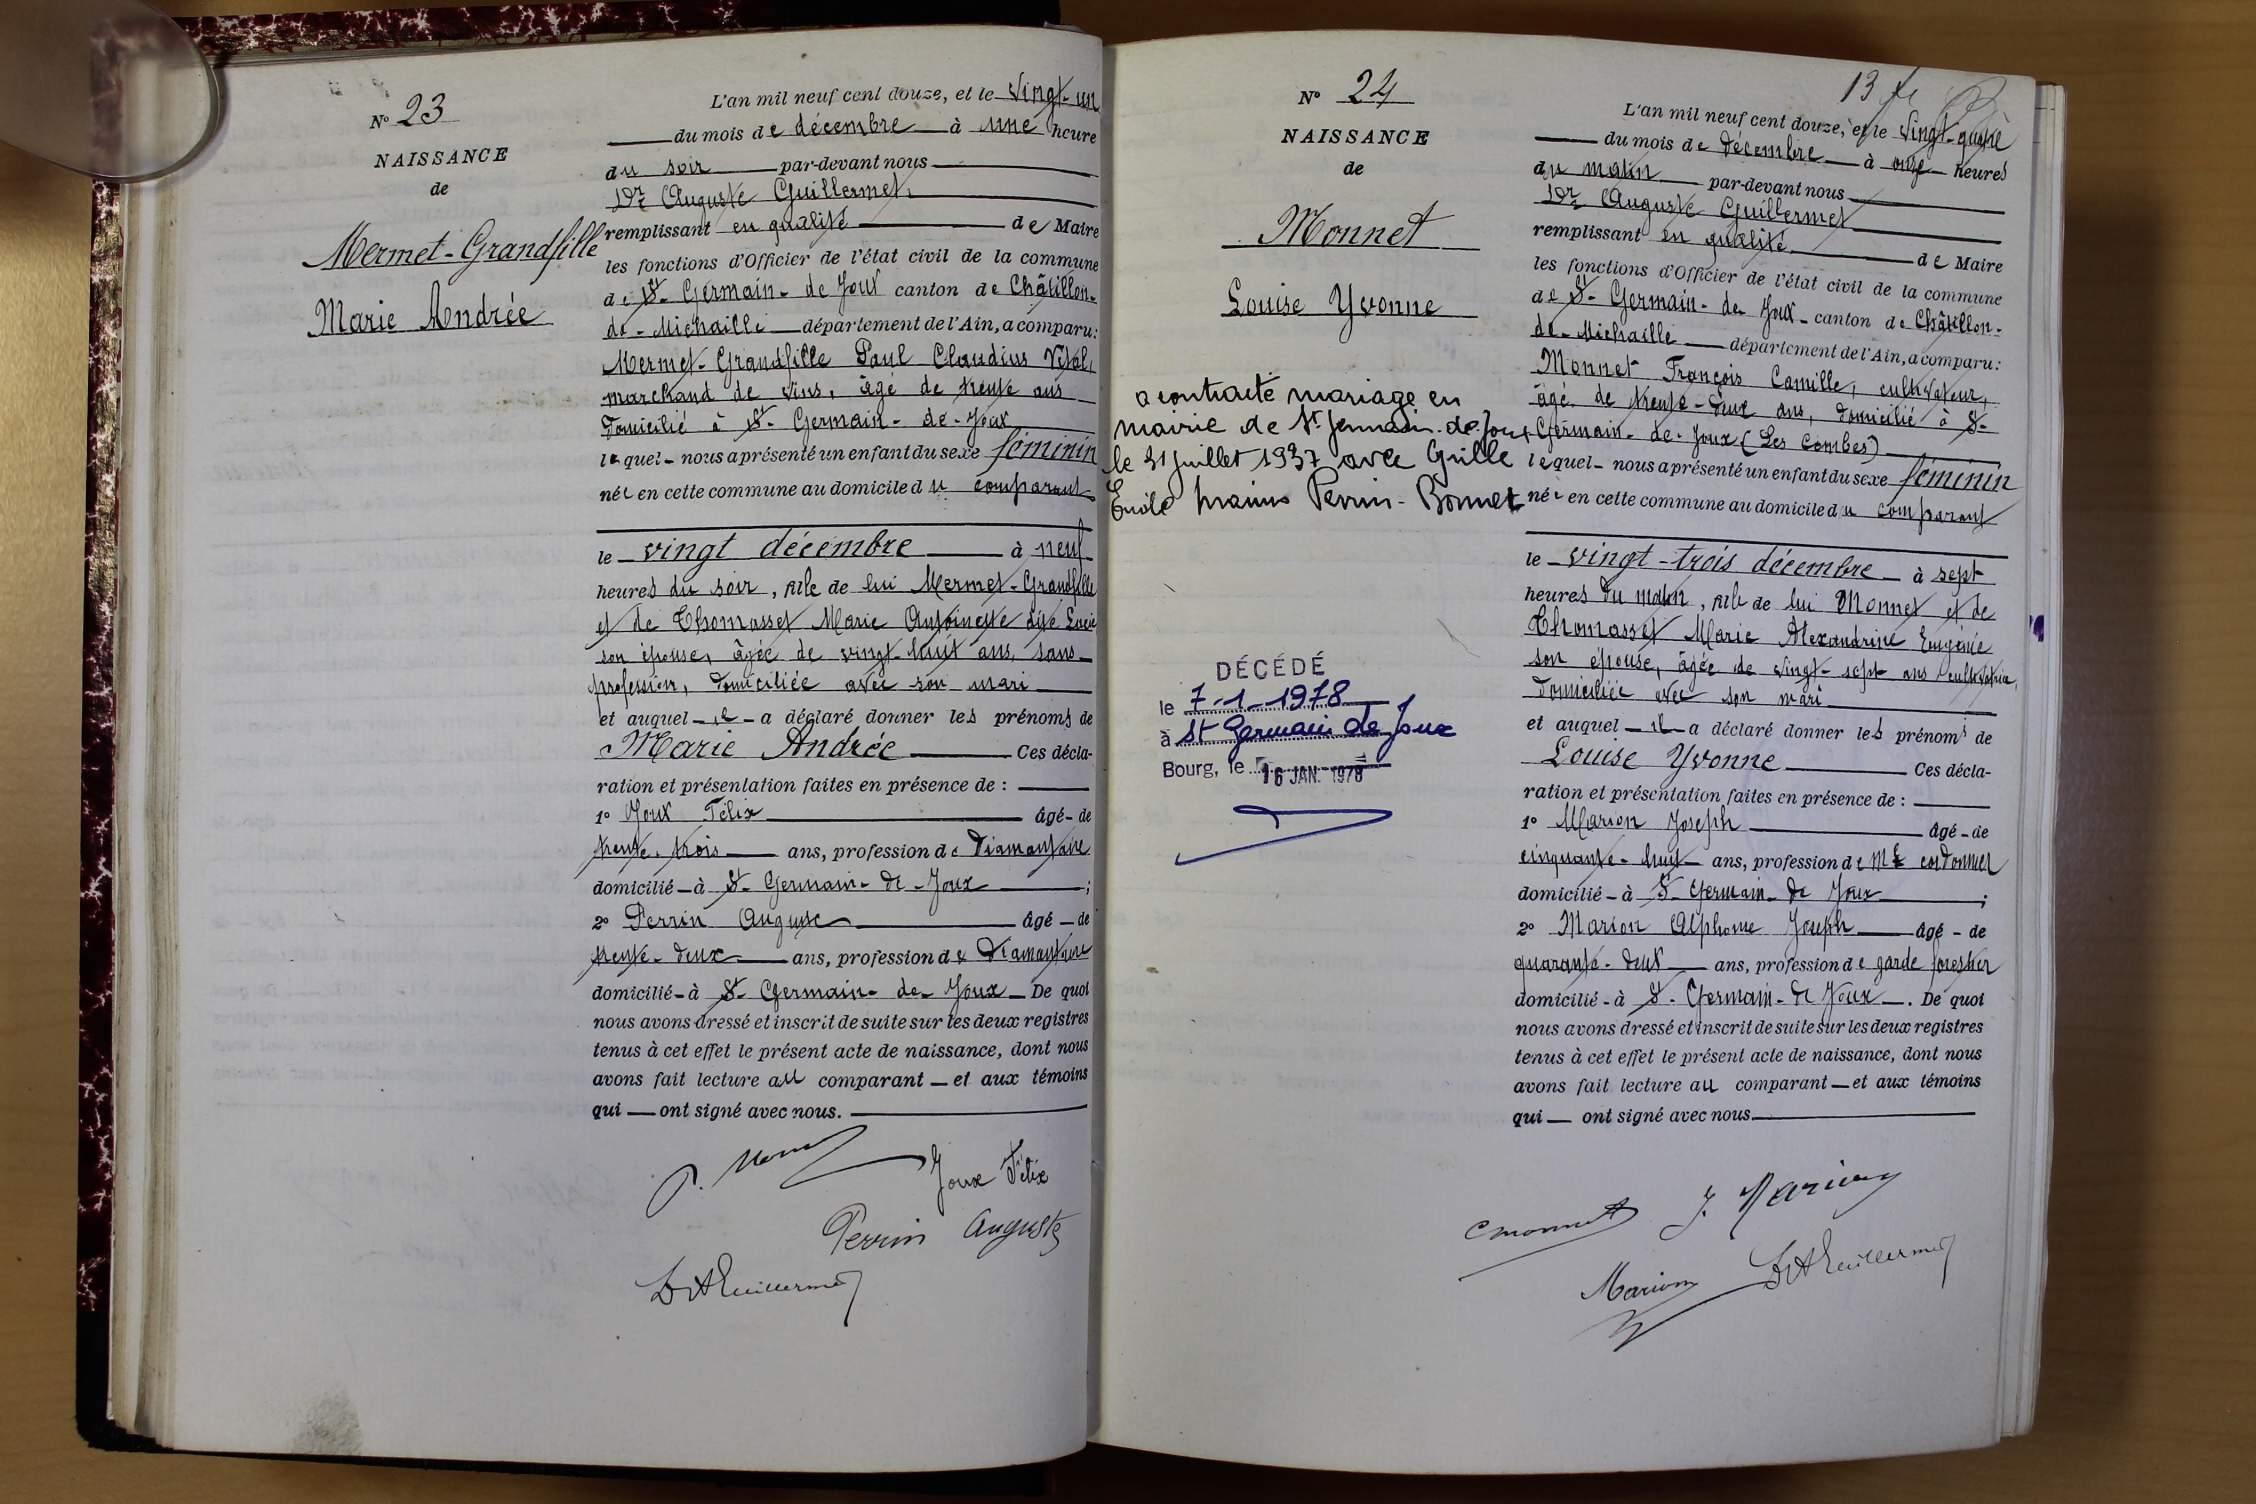 N° 23
NAISSANCE
de
Mermet-Grandfille
Marie Andrée
L'an mil neuf cent douze, et le vingt-un
du mois de décembre à une heure
du soir par-devant nous
Dr Auguste Guillermet,
remplissant en qualité de Maire
les fonctions d'Officier de l'état civil de la commune
de St-Germain-de Joux canton de Châtillon-
de-Michaille département de l'Ain, a comparu:
Mermet-Grandfille Paul Claudius Vital,
marchand de vins, âgé de trente ans
domicilié à St-Germain-de-Joux
lequel nous a présenté un enfant du sexe féminin
née en cette commune au domicile du comparant
le vingt décembre à neuf
heures du soir, fille de lui Mermet-Grandfille
et de Thomasset Marie Antoinette dite Lucie
son épouse, âgée de vingt-huit ans, sans
profession, domiciliée avec son mari
et auquel il a déclaré donner les prénoms de
Marie Andrée Ces décla-
ration et présentation faites en présence de :
1° Joux Félix âgé de
trente-trois ans, profession de Diamantaire
domicilié à St-Germain-de-Joux ;
2° Perrin Auguste âgé de
trente-deux ans, profession de Diamantaire
domicilié à St-Germain-de-Joux De quoi
nous avons dressé et inscrit de suite sur les deux registres
tenus à cet effet le présent acte de naissance, dont nous
avons fait lecture au comparant et aux témoins
qui ont signé avec nous.
Joux Félix
Perrin Auguste
Dr A Guillermet
13 fe
N° 24
NAISSANCE
de
Monnet
Louise Yvonne
a contracté mariage en
mairie de St Germain-de-Joux
le 31 juillet 1937 avec Grille
Emile Marius Perrin-Bonnet
DÉCÉDÉ
le 7-1-1978
à St Germain de Joux
Bourg, le 16 JAN. 1978
L'an mil neuf cent douze, et le vingt-quatre
du mois de décembre à onze heures
du matin par-devant nous
Dr Auguste Guillermet
remplissant en qualité de Maire
les fonctions d'Officier de l'état civil de la commune
de St-Germain-de-Joux canton de Châtillon-
de-Michaille département de l'Ain, a comparu:
Monnet François Camille, cultivateur,
âgé de trente-deux ans, domicilié à St-
Germain-de-Joux (Les Combes)
lequel nous a présenté un enfant du sexe féminin
née en cette commune au domicile du comparant
le vingt-trois décembre à sept
heures du matin, fille de lui Monnet et de
Thomasset Marie Alexandrine Eugénie
son épouse, âgée de vingt-sept ans cultivatrice,
domiciliée avec son mari
et auquel il a déclaré donner les prénoms de
Louise Yvonne Ces décla-
ration et présentation faites en présence de :
1° Marion Joseph âgé de
cinquante-huit ans, profession de Md cordonnier
domicilié à St-Germain-de Joux ;
2° Marion Alphonse Joseph âgé de
quarante-deux ans, profession de garde forestier
domicilié à St-Germain-de Joux. De quoi
nous avons dressé et inscrit de suite sur les deux registres
tenus à cet effet le présent acte de naissance, dont nous
avons fait lecture au comparant et aux témoins
qui ont signé avec nous
C Monnet J. Marion
Marion Dr A Guillermet